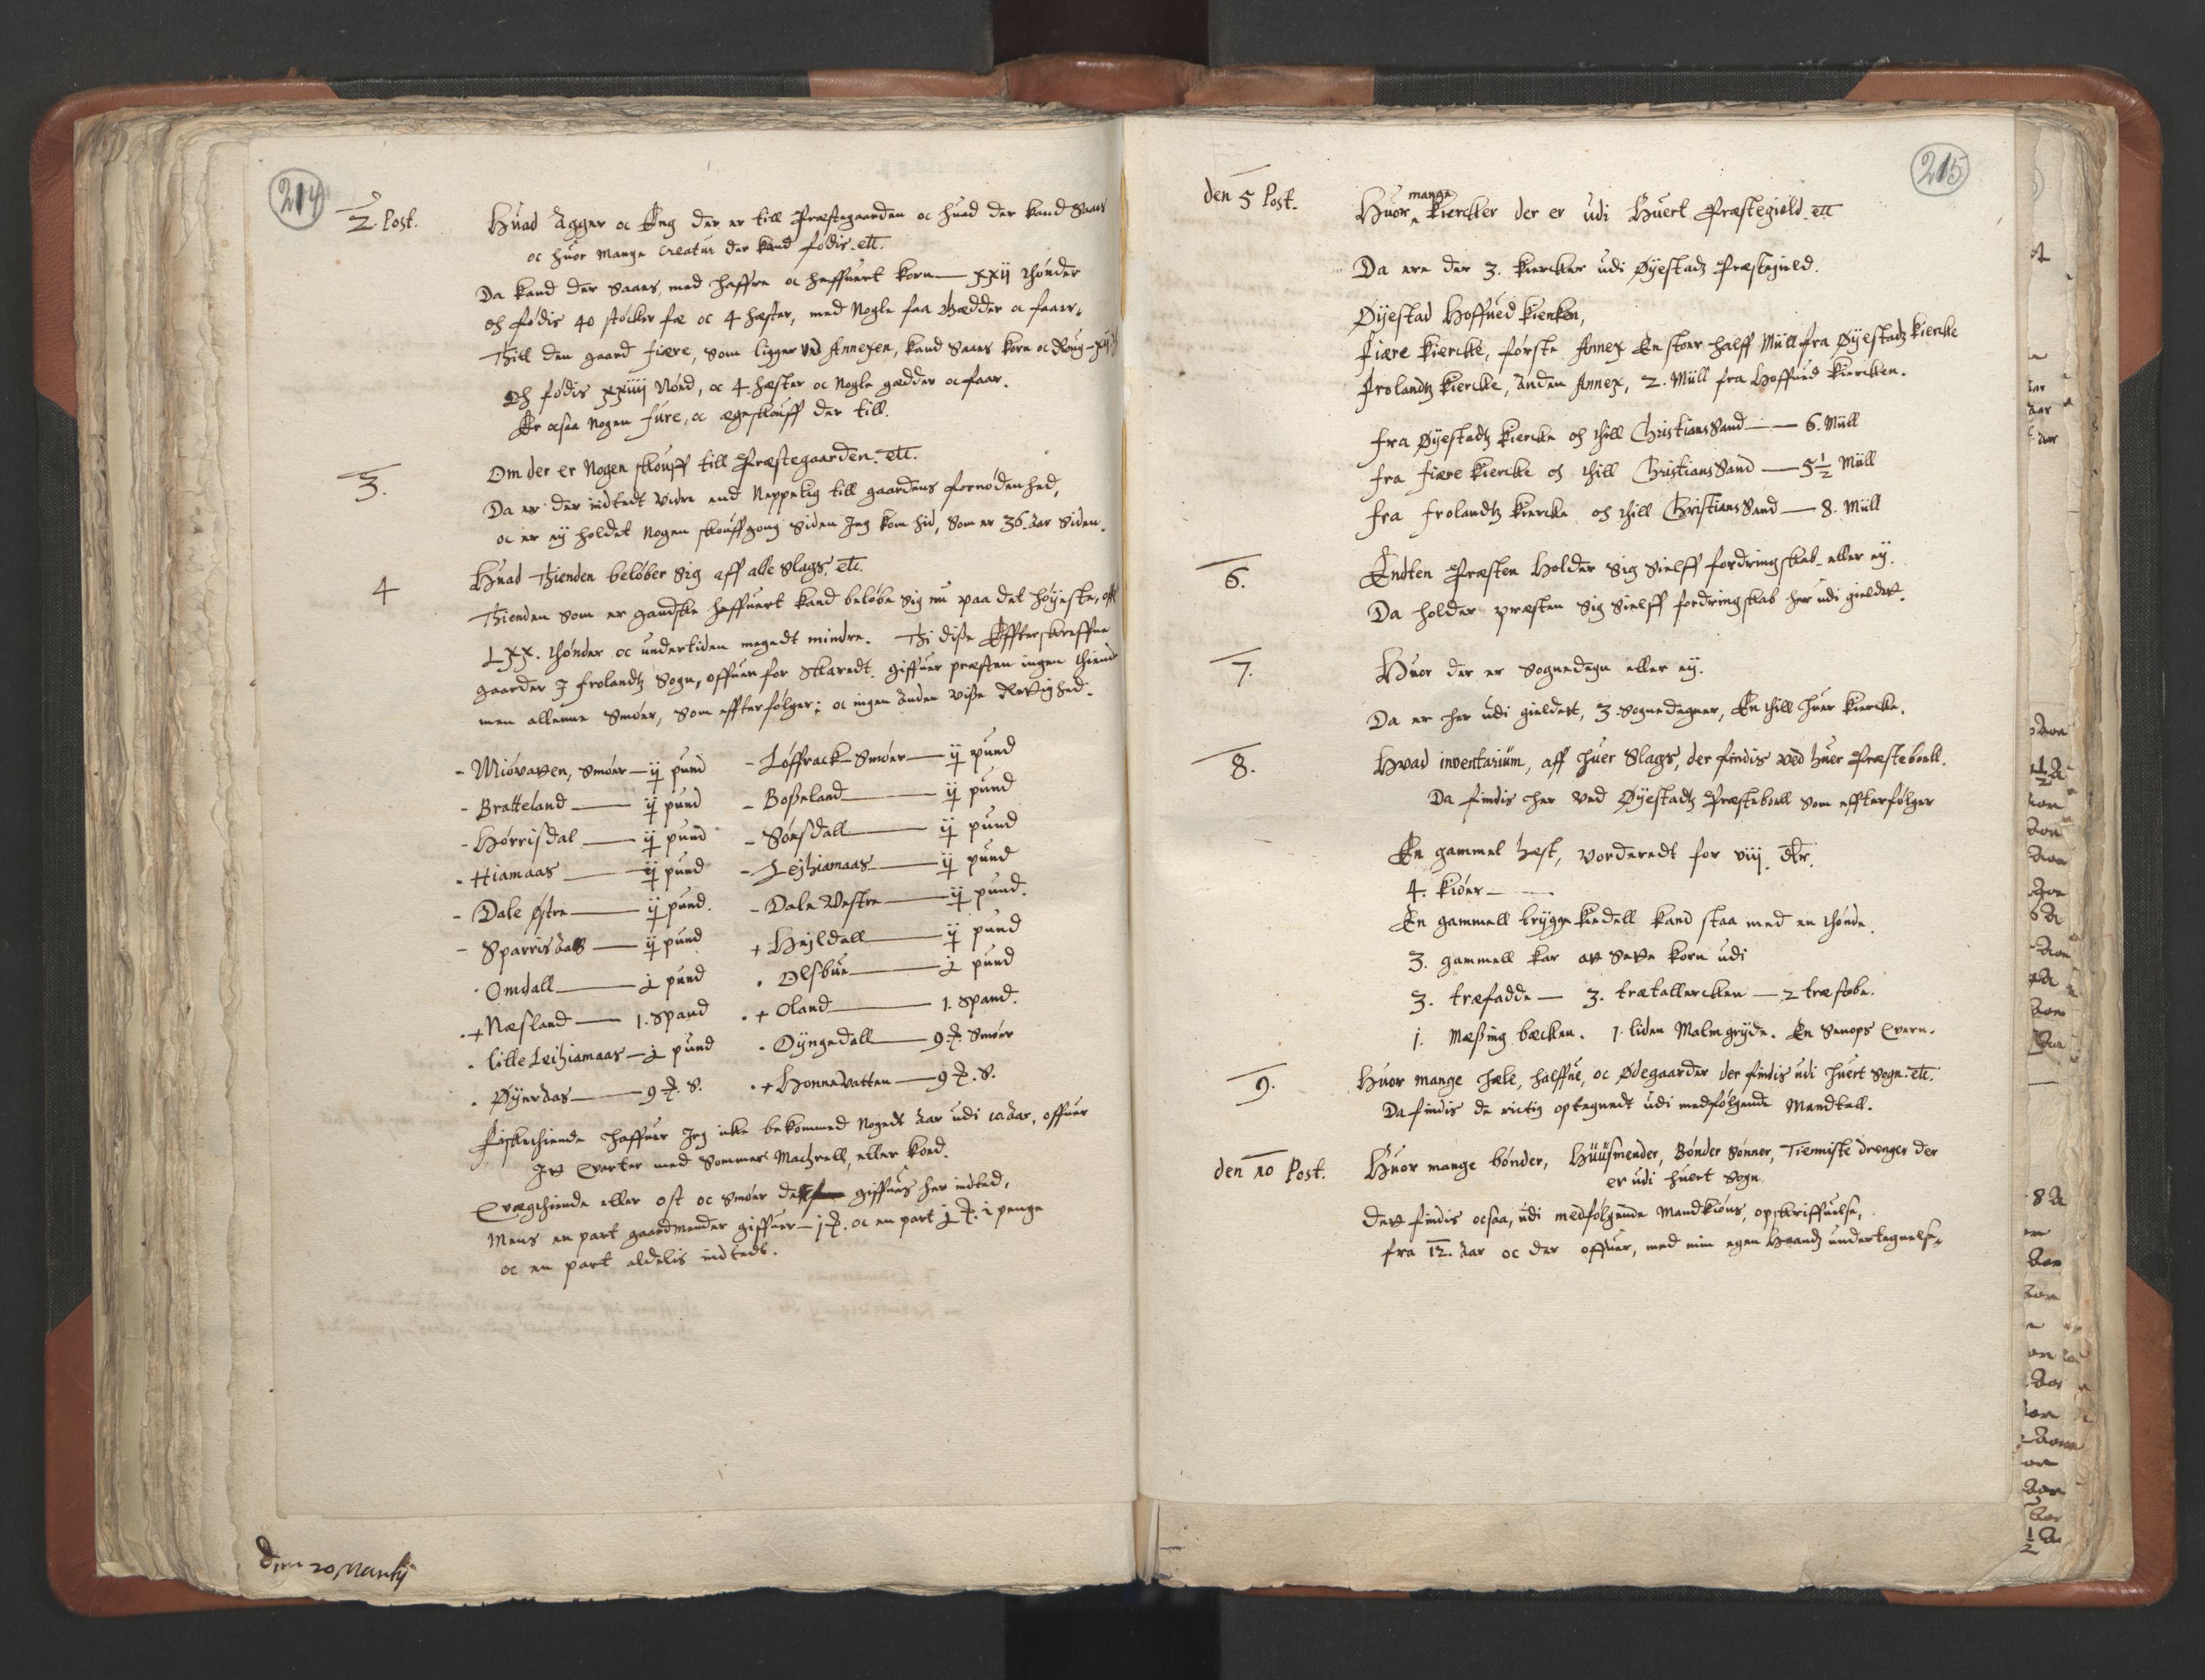 214
2. Post.
Huad Agger oc Eng der er till Præstegaarden oc huad der kand Saaes
oc huor mange Creatur der kand fødis. etc.
Da kand der Saaes, med haffre oc haffuert korn — xxij thønder
oc fødis 40 støcker fæ oc 4 hæster, med Nogle faa Gædder oc faaer,
Thill den gaard Fiære, som ligger ved Annexen, kand Saaes korn oc Roug
Oc fødis xxiiij Nød, oc 4. hæster oc Nogle gædder oc faar.
Er ocsaa Nogen fure, oc ægeskouff der till.
3.
Om der er Nogen skouff till Præstegaarden. etc.
Da er der indtedt Videre end Neppelig till gaardens fornødenhed,
oc er ey holdet Nogen skouffgong siden Jeg kom hid, som er 36. aar siden.
4
Huad Thienden beløber Sig aff alle Slags, etc.
Thienden som er gandske haffuert kand beløbe Sig nu paa det høyeste,
Lxx. thønder oc undertiden megedt mindre. Thi disse Effterskreffne
gaarder J Frolandtz Sogn, offuen for Skaredt. giffuer præsten ingen thiende
men allenne Smør, som effterfølger; oc ingen anden visse Rettighed.
- Miøvaten, Smør — ij pund - Løffrack Smør — ij pund
- Bratteland — ij pund - Bosseland — ij pund
- Hørrisdal — ij pund - Sønsdall — ij pund
- Hiamaas — ij pund - Leyhiamaas — ij pund
- Dale østre — ij pund. - Dale Vestre — ij pund.
- Sparrisaas — ij pund + Heyldall — ij pund
. Omdall — j pund . Olsbue — j pund
.+ Næsland — 1. Spand .+ Oland — 1. Spand.
. litle Leihiamaas — j pund . Øyngedall — 9 ℔. Smør
. Øyneraas — 9 ℔. S. .+ Honnevatten — 9 ℔. S.
Fiskethiende haffuer Jeg icke bekommed Nogedt aar udi 10 aar, offuer
Jt Qvarter med Sommer Machrell, eller Koed.
Qvægthiende eller ost oc smør giffues her indted,
Mens en part gaardmender giffuer — 1 ℔. oc en part j ℔. i penge
oc en part aldelis indtedt.
Denn 20 Martij
215
den 5 Post.
mange
Huor ^ Kiercker der er udi Huert Præstegiæld. etc
Da ere der 3. kiercker udi Øyestadz Præstegield.
Øyestad Hoffued kiercken,
Fiære Kiercke, første Annex En stoer halff Miill fra Øyestadz Kiercke
Frolandtz Kiercke, anden Annex, 2. Miill fra Hoffued Kiercken.
Fra Øyestadtz Kiercke och thill Christians Sand — 6. Miill
Fra Fiære Kiercke och thill Christians Sand — 5 1/2 Miill
Fra Frolandtz Kiercke och thill Christians Sand — 8. Miill
6.
Endten Præsten Holder Sig Sielff fordringskab eller ey.
Da holder præsten Sig Sielff fordringskab her udi gieldet.
7.
Huor der er Sognedegn eller ey.
Da er her udi gieldett, 3 Sognedegner, En thill huer Kiercke.
8.
Hvad inventarium, aff huer Slags, der findis ved huer Præsteboell.
Da findis her ved Øyestadtz Præsteboell som effterfølger
En gammel hest, vorderedt for viij dlr.
4. kiøer —
En gammell brygge kiedell kand staa med en thønde
3. gammell kar at Sette korn udi
3. træfadde — 3. trætallercken — 2 træstobe.
1. Mæssing bæcken. 1. liden Malmgryde. En Senops Qvern.
9.
Huor mange hæle, halffue, oc Ødegaarder der findis udi huert Sogn. etc.
Da findis de rictig optegnedt udi medfølgende Mandtall.
den 10 Post.
Huor mange bønder, Huusmender, Bønder Sønner, Tienniste drenger der
er udi huert Sogn
Dett findis ocsaa, udi medfølgende Mandkiøns, opskriffuelse,
fra 12. Aar oc der offuer, med min egen Haandz undertegnelse.